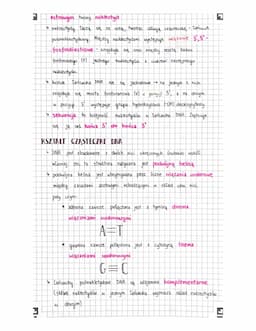 pełnionym tworzy nukleotyd.
• nukleotydy łączą się ze sobą, tworząc długą cząsteczkę - łańcuch
polinukleotydowy. Między nukleotydami występuje wiązanie 3',5'-
fosfodiestrowe - znajduje się ono między resztą kwasu
fosforowego (V) jednego nukleotydu a cukrem następnego
nukleotydu.
• końce łańcucha DNA nie są jednakowe → na jednym z nich
znajduje się reszta fosforanowa (V) w pozycji 5', a na drugim
w pozycji 3' występuje grupa hydroksylowa (OH) deoksyrybozy
• sekwencja to kolejność nukleotydów w łańcuchu DNA. Zapisuje
się ją od końca 5' do końca 3'
KSZTAŁT CZĄSTECZKI DNA
• DNA jest zbudowane z dwóch nici skręconych
, ta struktura nazywana jest podwójną helisą
• podwójna helisa jest utrzymywana przez liczne wiązania wodorowe
między zasadami azotowymi wchodzącymi w skład obu nici,
przy czym:
• adenina zawsze połączona jest z tyminą dwoma
wiązaniami wodorowymi
A=T
• guanina zawsze połączona jest z cytozyną trzema
wiązaniami wodorowymi
G≡C
• łańcuchy polinukleotydowe DNA są wzajemnie komplementarne
(układ nukleotydów w jednym łańcuchu wyznacza układ nukleotydów
w drugim)